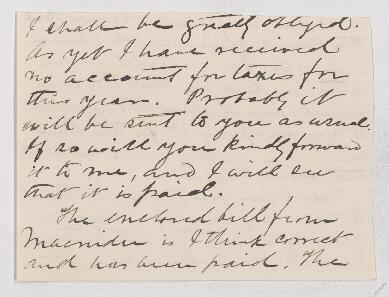 I shall be greatly obliged.
As yet I have received
no account for taxes for
this year. Probably it
will be sent to you as usual.
If so will you kindly forward
it to me, and I will see
that it is paid.
The enclosed bill from
Macnider is I think correct
and has been paid. The